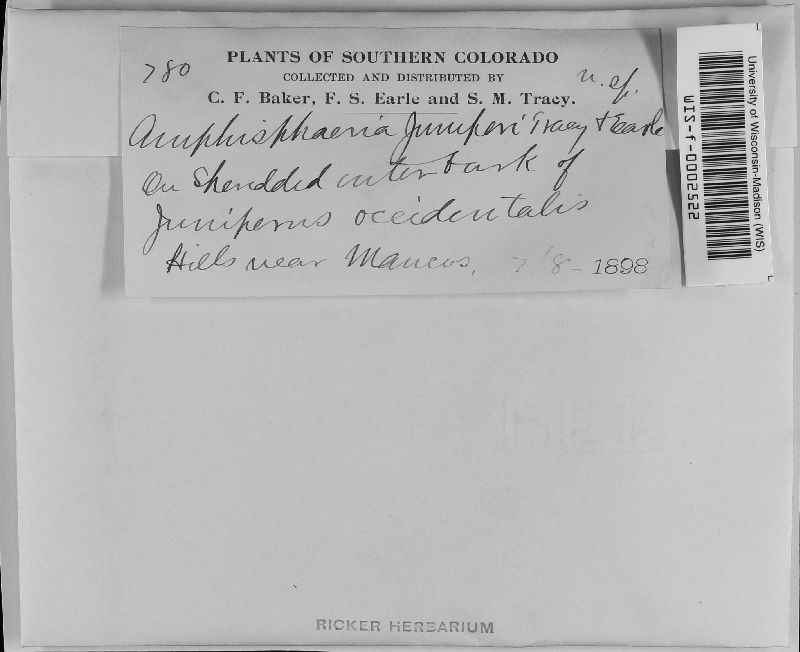 780
PLANTS OF SOUTHERN COLORADO
COLLECTED AND DISTRIBUTED BY
n. sp.
C. F. Baker, F. S. Earle and S. M. Tracy.
Amphisphaeria Juniperi Tracy & Earle
On Shredded outer bark of
Juniperus occidentalis
Hills near Mancos, 7/8-1898
University of Wisconsin-Madison (WIS)
WIS-f-0002522
RICKER HERBARIUM